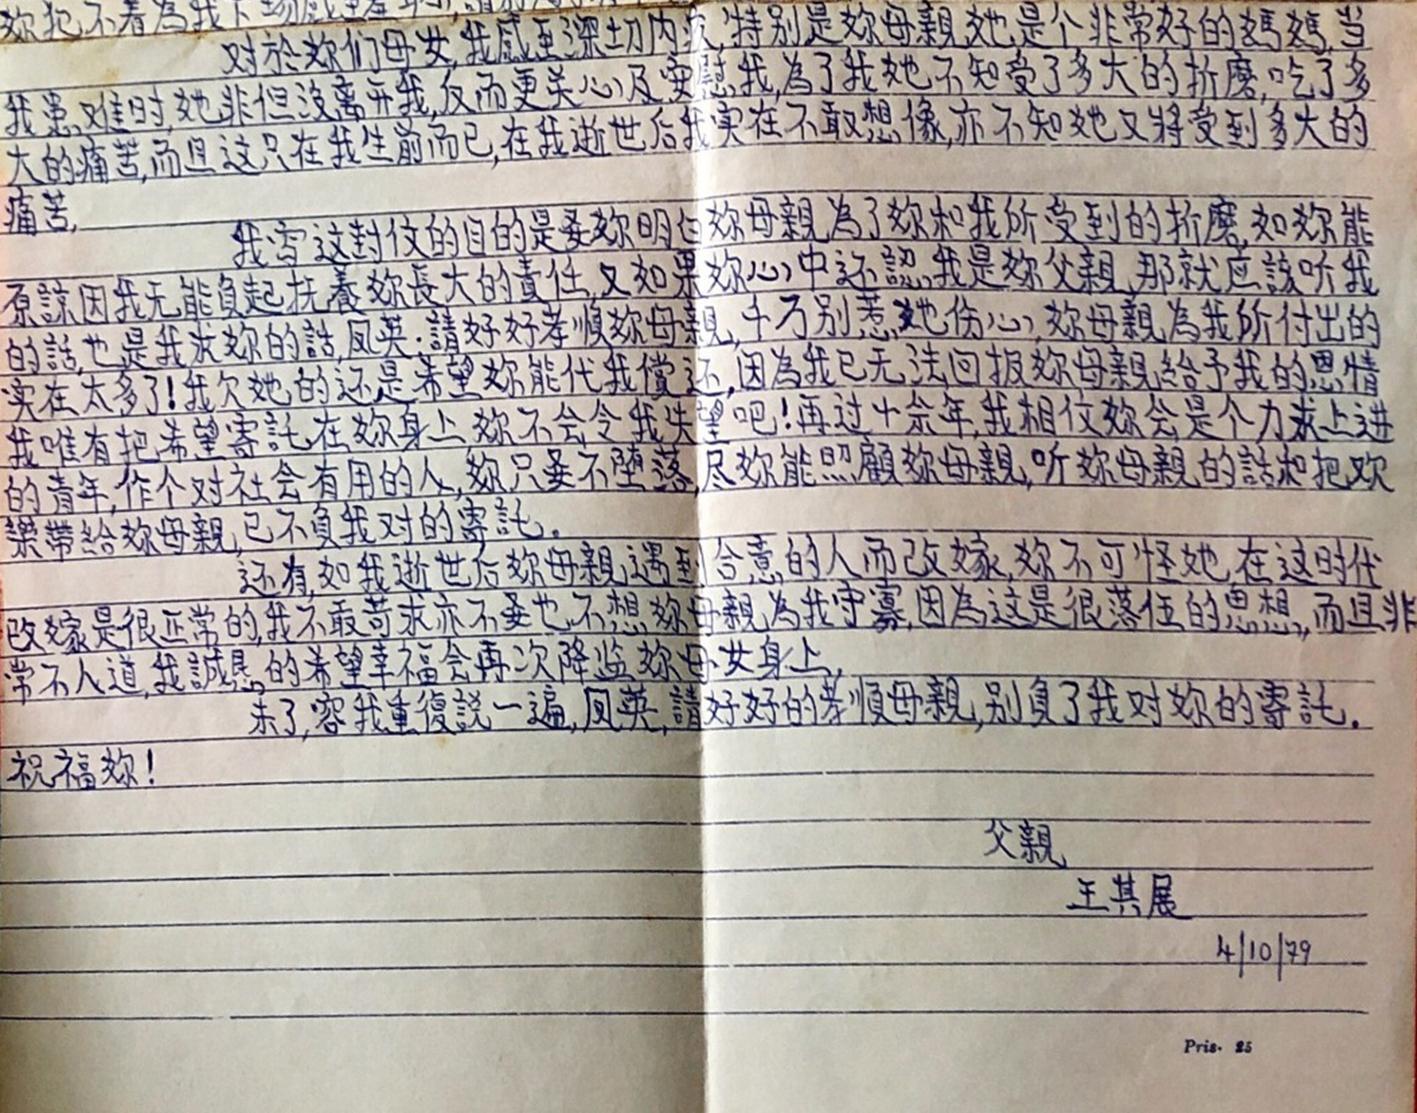 妳犯不着為我下場感至羞
对於妳们母女,我感至深切内疚,特别是妳母親,她是个非常好的媽媽,当
我患难时,她非但没离开我,反而更关心及安慰我,為了我她不知受了多大的折磨,吃了多
大的痛苦,而且这只在我生前而已,在我逝世后我实在不敢想像,亦不知她又将受到多大的
痛苦,
我写这封信的目的是要妳明白妳母親為了妳和我所受到的折磨,如妳能
原諒因我无能負起抚養妳長大的責任,又如果妳心中还認我是妳父親,那就应該听我
的話,也是我求妳的話,凤英:請好好孝順妳母親,千万别惹她伤心,妳母親為我所付出的
实在太多了!我欠她的还是希望妳能代我償还,因為我已无法回报妳母親給予我的恩情
我唯有把希望寄託在妳身上,妳不会令我失望吧!再过十余年,我相信妳会是个力求上进
的青年,作个对社会有用的人,妳只要不堕落,尽妳能照顧妳母親,听妳母親的話和把欢
樂帶給妳母親,已不負我对的寄託。
还有,如我逝世后妳母親遇到合意的人而改嫁,妳不可怪她,在这时代
改嫁是很正常的,我不敢苛求亦不要也不想妳母親為我守寡,因為这是很落伍的思想,而且非
常不人道,我誠恳的希望幸福会再次降临妳母女身上,
末了,容我重復説一遍,凤英,請好好的孝順母親,别負了我对妳的寄託。
祝福妳!
父親
王其展
4/10/79
Pris. 25